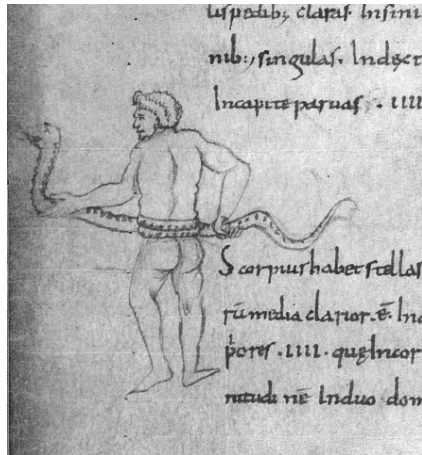 us pedib; claras. In sini
nib:, singulas. In dext
In capite paruas . IIII
Scorpius habet stellas
rũ media clarior. ē. In
pores . IIII . quę In cor
nitudinē In duo dom